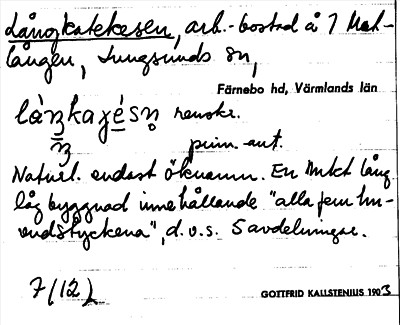 Långkatekesen, arb.-bostad å 7 Mal-
lången, Lungsunds sn,
Färnebo hd, Värmlands län
renskr.
prim. aut.
Naturl. endast öknamn. En mkt lång
låg byggnad innehållande "alla fem hu-
vudstyckena", d.v.s. 5 avdelningar.
7/(12)
GOTTFRID KALLSTENIUS 1903